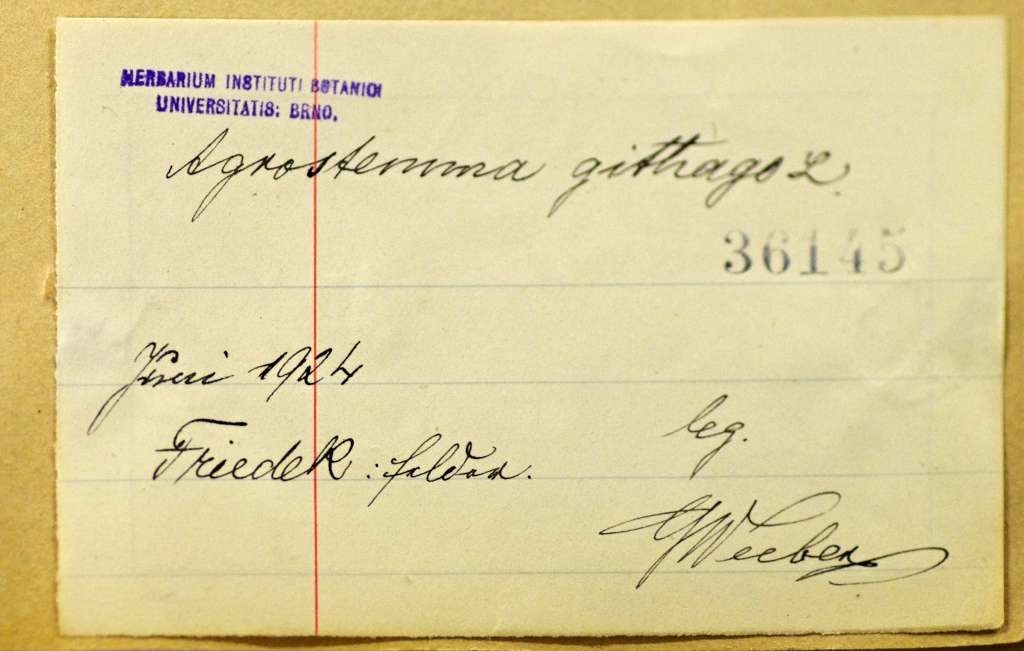 HERBARIUM INSTITUTI BOTANICI
UNIVERSITATIS: BRNO.
Agrostemma githago L.
36145
Juni 1924
leg.
Friedek: felder.
GWeeber